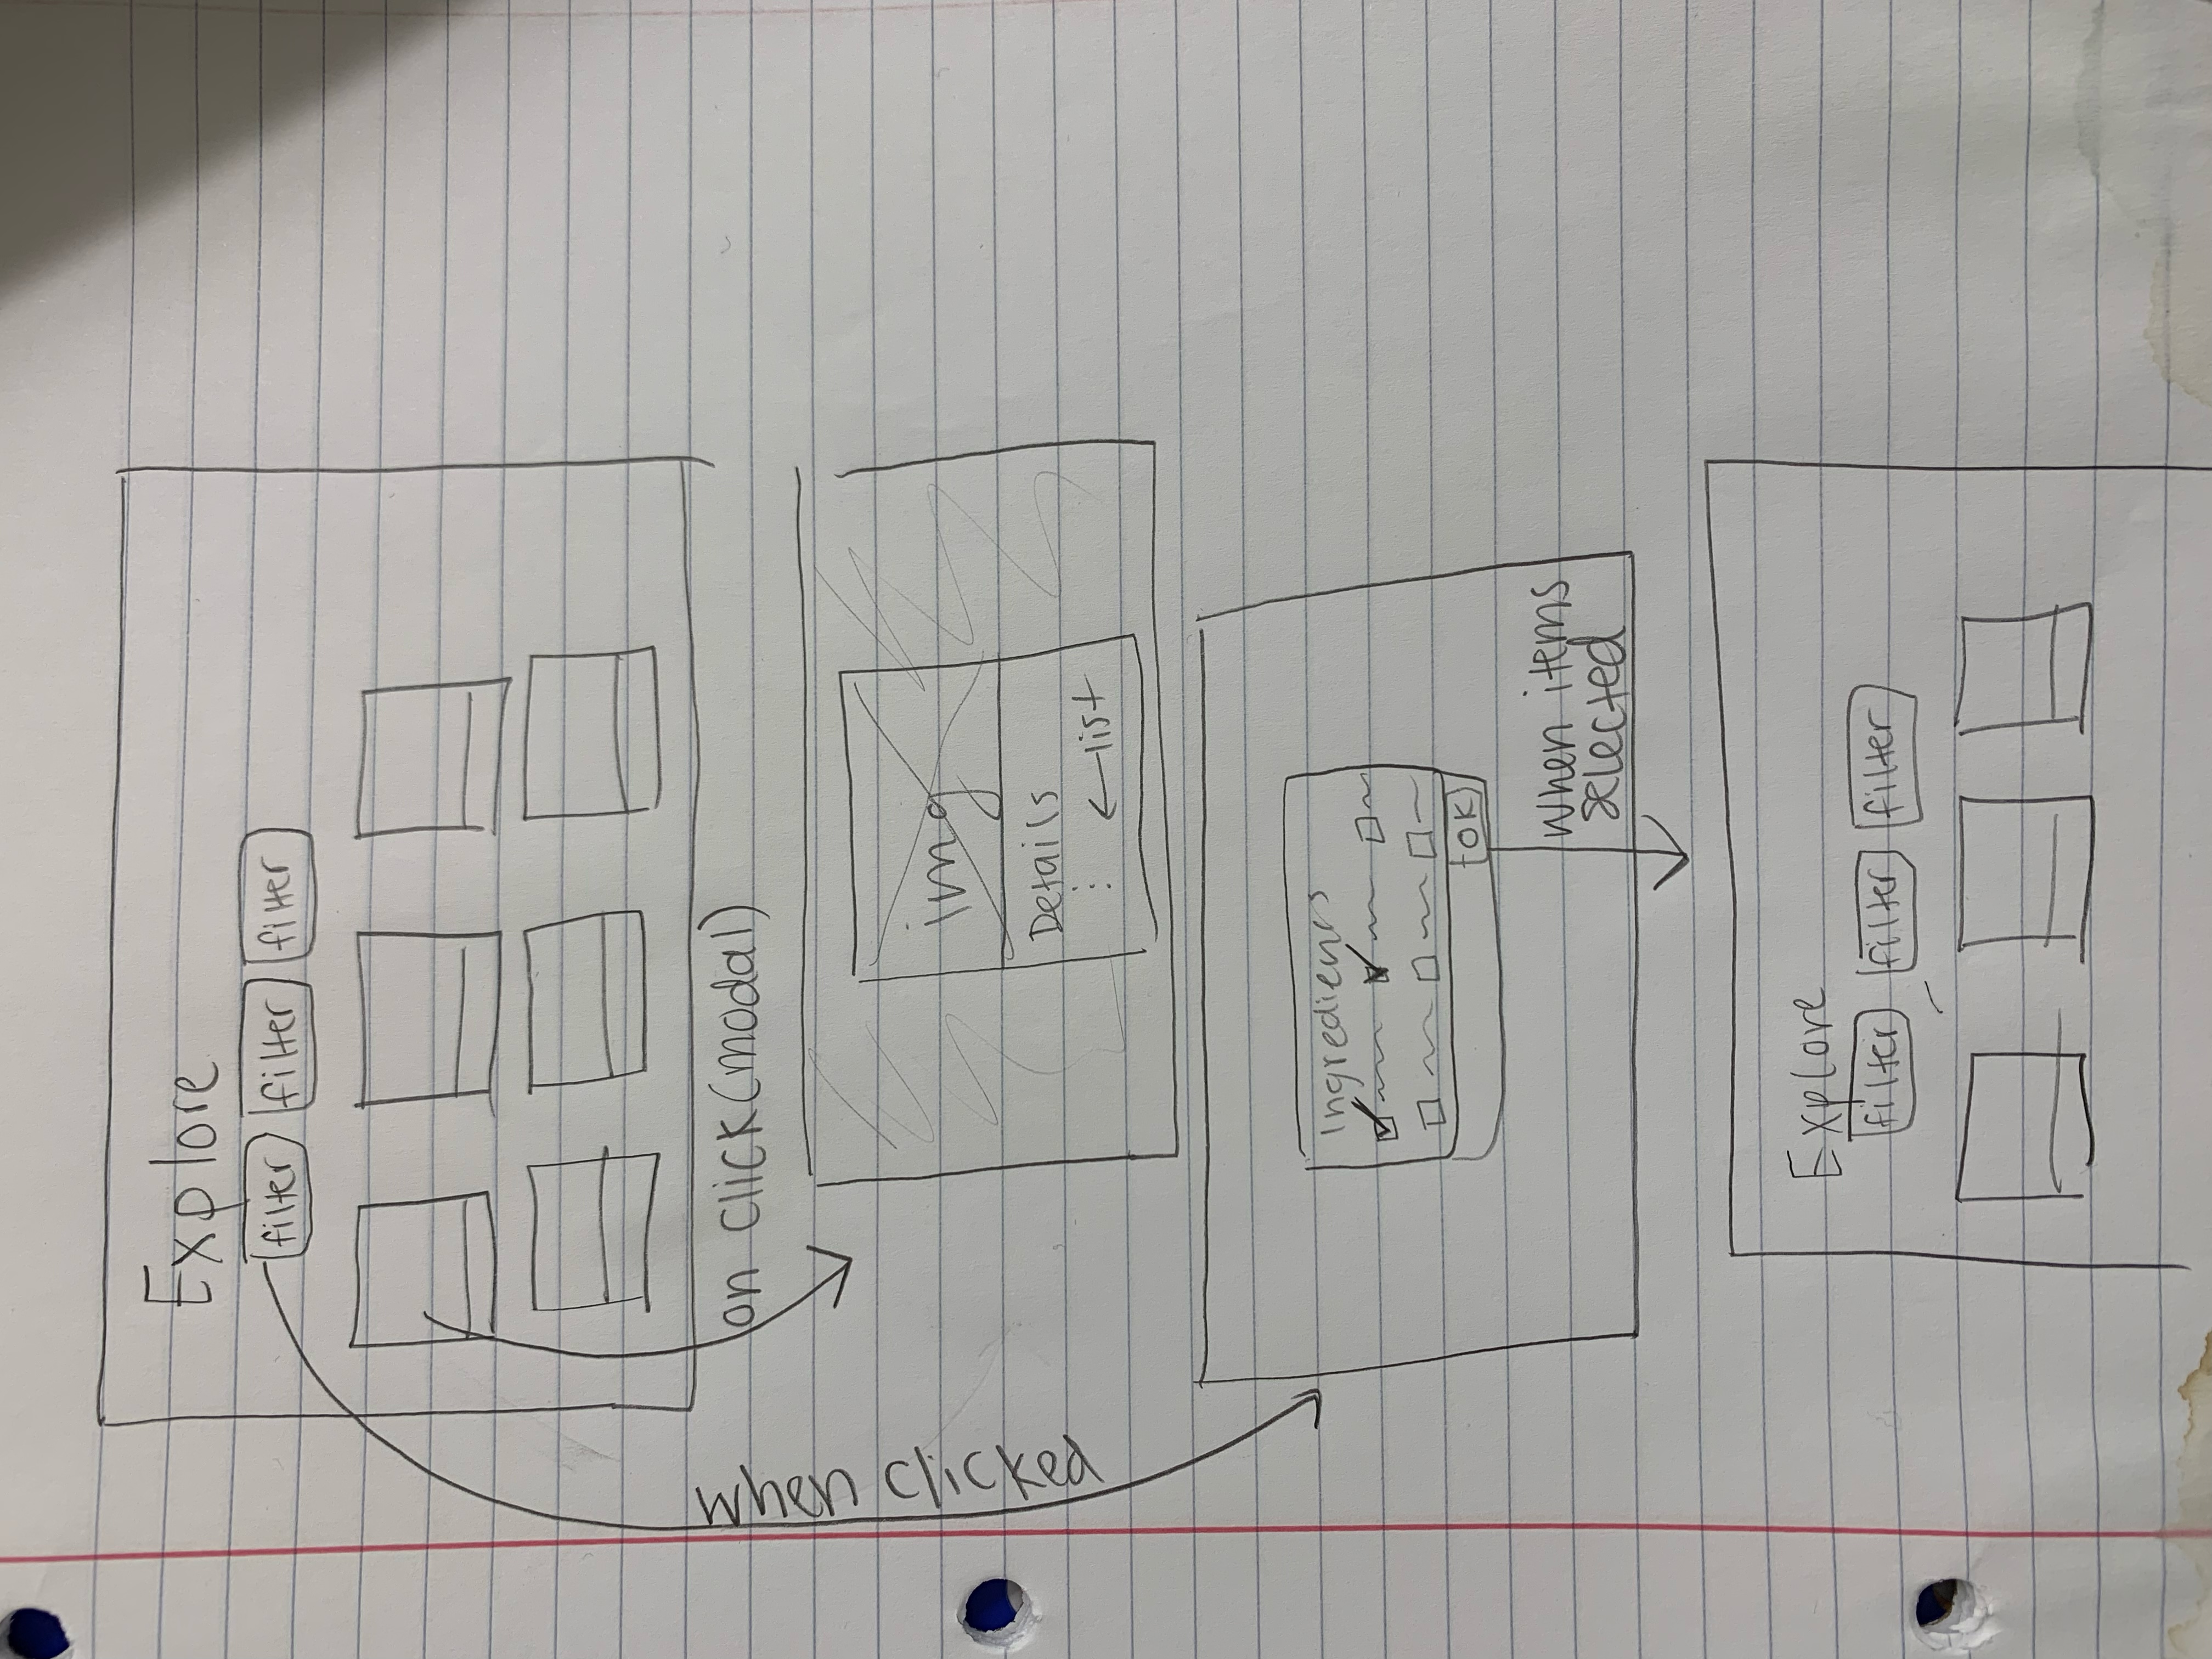 Explore
filter filter filter
on click (modal)
when clicked
img
Details
←list
Ingredients
OK
when items
selected
Explore
filter filter filter